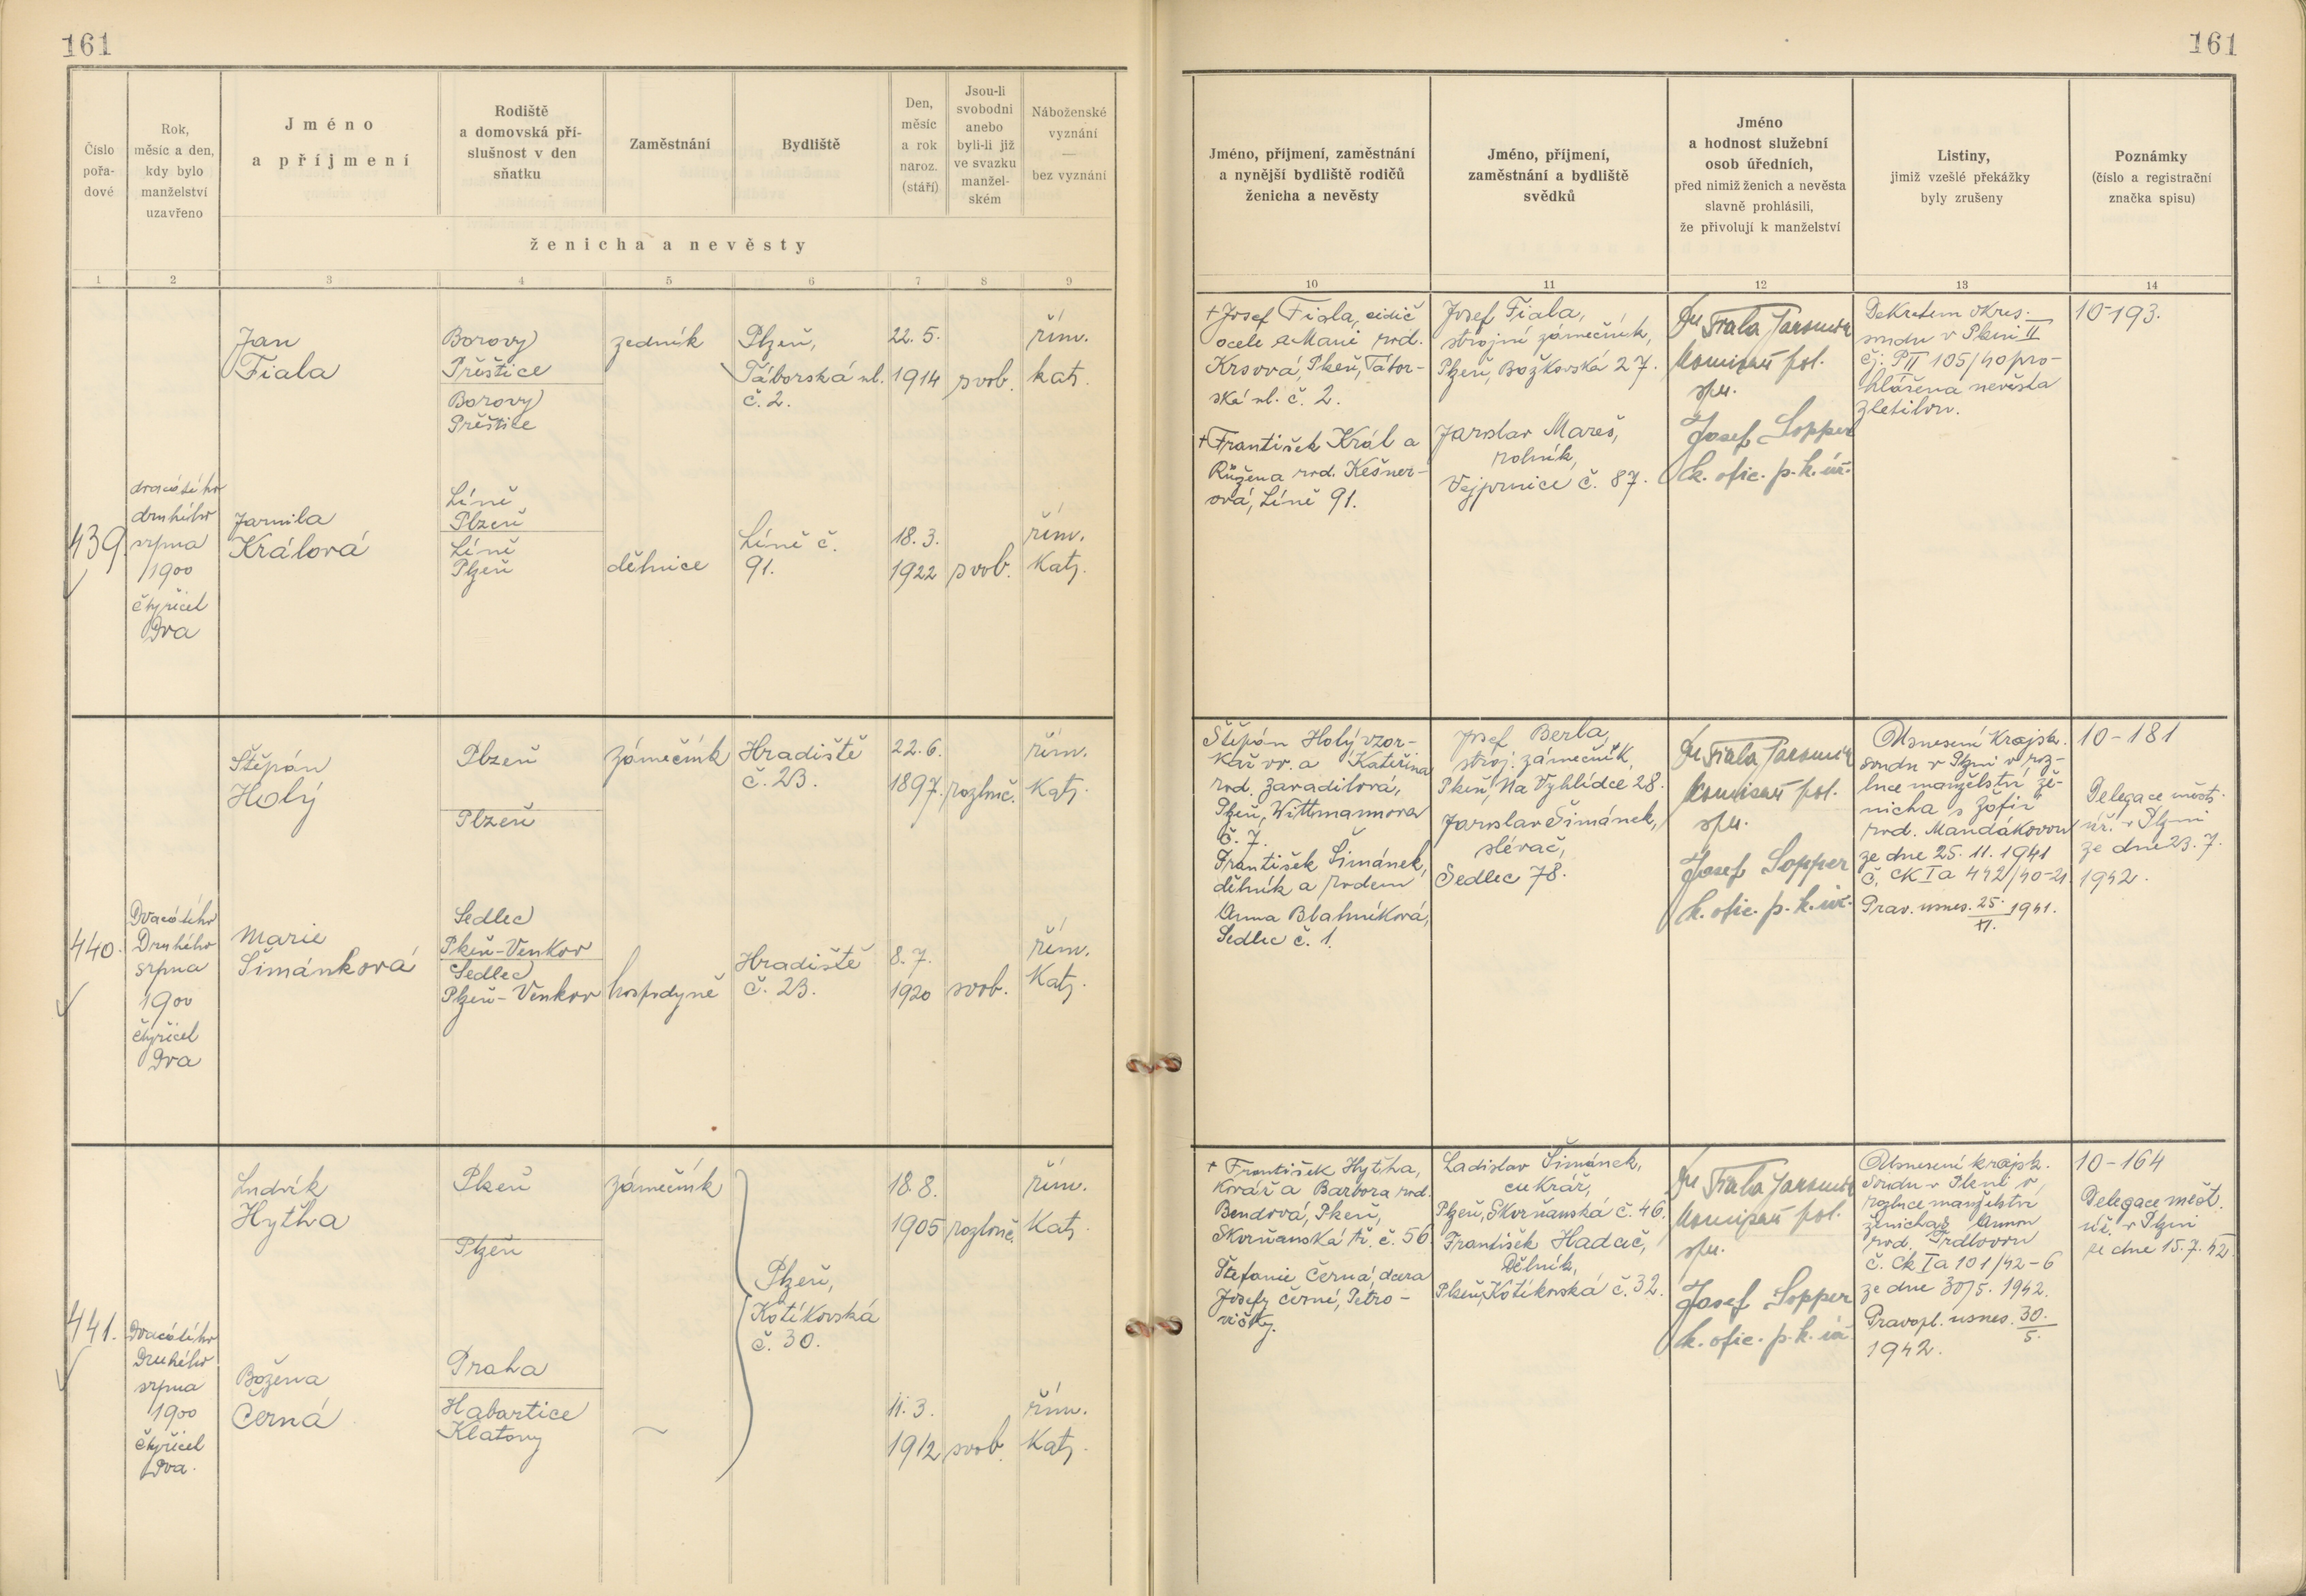 161
161
Číslo
pořa-
dové
Rok,
měsíc a den,
kdy bylo
manželství
uzavřeno
Jméno
a příjmení
Rodiště
a domovská pří-
slušnost v den
sňatku
Zaměstnání
Bydliště
Den,
měsíc
a rok
naroz.
(stáří)
Jsou-li
svobodni
anebo
byli-li již
ve svazku
manžel-
ském
Náboženské
vyznání
—
bez vyznání
ženicha a nevěsty
Jméno, příjmení, zaměstnání
a nynější bydliště rodičů
ženicha a nevěsty
Jméno, příjmení,
zaměstnání a bydliště
svědků
Jméno
a hodnost služební
osob úředních,
před nimiž ženich a nevěsta
slavně prohlásili,
že přivolují k manželství
Listiny,
jimiž vzešlé překážky
byly zrušeny
Poznámky
(číslo a registrační
značka spisu)
1 2 3 4 5 6 7 8 9
10 11 12 13 14
439.
dvacátého
druhého
srpna
1900
čtyřicet
Dva
Jan
Fiala
Borovy
Přeštice
Borovy
Přeštice
zedník
Plzeň,
Táborská ul.
č. 2.
22. 5.
1914
svob.
řím.
kat.
Jarmila
Králová
Líně
Plzeň
Líně
Plzeň
dělnice
Líně č.
91.
18. 3.
1922
svob.
řím.
Kat.
+ Josef Fiala, cidič
ocele a Marie rod.
Krsová, Plzeň, Tábor-
ská ul. č. 2.
+ František Král a
Růžena rod. Kešner-
ová, Líně 91.
Josef Fiala,
strojní zámečník,
Plzeň, Božkovská 27.
Jaroslav Mareš,
rolník,
Vejprnice č. 87.
Dr Fiala Jaromír
komisař pol.
spr.
Josef Sopper
k. ofic. p. k. úř.
Dekretem okres.
soudu v Plzni II
čj. P II 105/40 pro-
hlášena nevěsta
zletilou.
10-193.
440.
Dvacátého
Druhého
srpna
1900
čtyřicet
Dva
Štěpán
Holý
Plzeň
Plzeň
zámečník
Hradiště
č. 23.
22. 6.
1897.
rozluč.
řím.
Kat.
Marie
Šimánková
Sedlec
Plzeň-Venkov
Sedlec
Plzeň-Venkov
hospodyně
Hradiště
č. 23.
8. 7.
1920
svob.
řím.
Kat.
Štěpán Holý vzor-
kař vv. a Kateřina
rod. Zavadilová,
Plzeň, Wittmannova
č. 7.
František Šimánek,
dělník a rodem
Anna Blahníková,
Sedlec č. 1.
Josef Berla,
stroj. zámečník,
Plzeň, Na Vyhlídce 28.
Jaroslav Šimánek,
slévač,
Sedlec 78.
Dr Fiala Jaromír
komisař pol.
spr.
Josef Sopper
k. ofic. p. k. úř.
Usnesení Krajsk.
soudu v Plzni o roz-
luce manželství že-
nicha s Žofií
rod. Mandákovou
ze dne 25. 11. 1941
č. CK I a 442/40-21.
Prav. usnes. 25./XI. 1941.
10-181
Delegace měst.
úř. v Plzni
ze dne 23. 7.
1942.
441.
Dvacátého
Druhého
srpna
1900
čtyřicet
Dva.
Ludvík
Hytha
Plzeň
Plzeň
zámečník
18. 8.
1905
rozluč.
řím.
Kat.
Plzeň,
Kotíkovská
č. 30.
Božena
Černá
Praha
Habartice
Klatovy
~
11. 3.
1912
svob.
řím.
Kat.
+ František Hytha,
Kovář a Barbora rod.
Bendová, Plzeň,
Skvrňanská tř. č. 56.
Štefanie Černá, dcera
Josefy Černé, Petro-
vičky.
Ladislav Šimánek,
cukrář,
Plzeň, Skvrňanská č. 46.
František Hadač,
Dělník,
Plzeň, Kotíkovská č. 32.
Dr Fiala Jaromír
komisař pol.
spr.
Josef Sopper
k. ofic. p. k. úř.
Usnesení krajsk.
soudu v Plzni o
rozluce manželství
ženicha s Annou
rod. Trdlovou
č. Ck I a 101/42-6
ze dne 30/5. 1942.
Pravopl. usnes. 30./5.
1942.
10-164
Delegace měst.
úř. v Plzni
ze dne 15. 7. 42.